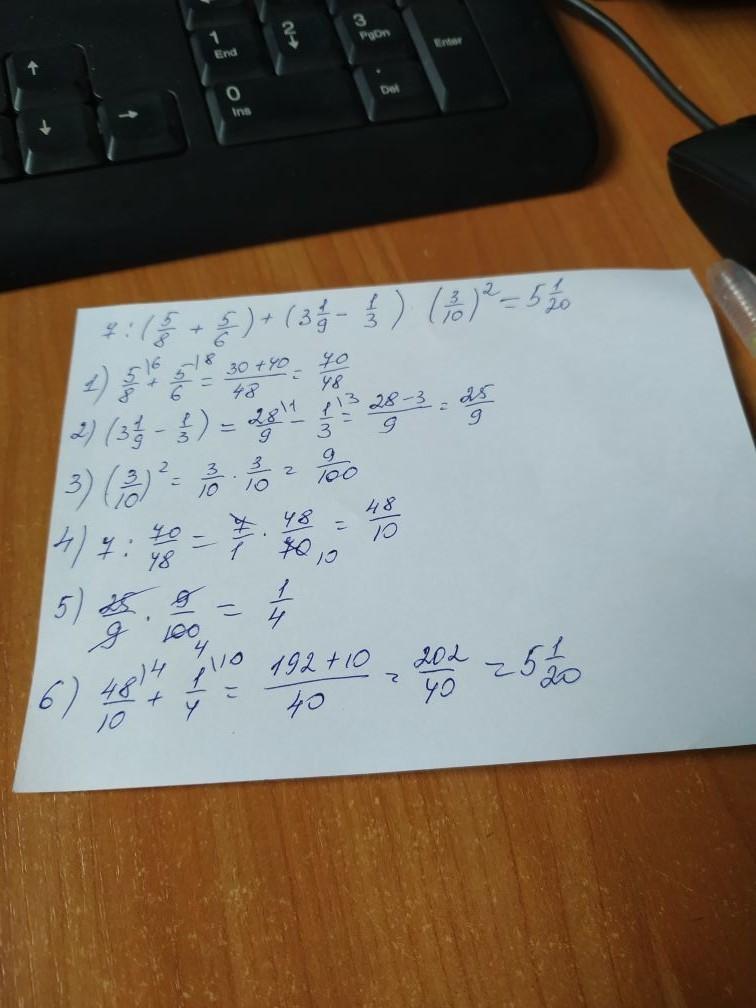 ↑
1 End
2 ↓
3 PgDn
Enter
↓
→
0 Ins
. Del
7 : (5/8 + 5/6) + (3 1/9 - 1/3) · (3/10)² = 5 1/20
1) 5/8 \6 + 5/6 \8 = 30+40/48 = 70/48
2) (3 1/9 - 1/3) = 28/9 \1 - 1/3 \3 = 28-3/9 = 25/9
3) (3/10)² = 3/10 · 3/10 = 9/100
4) 7 : 70/48 = 7/1 · 48/70 10 = 48/10
5) 25/9 · 9/100 4 = 1/4
6) 48/10 \4 + 1/4 \10 = 192+10/40 = 202/40 = 5 1/20